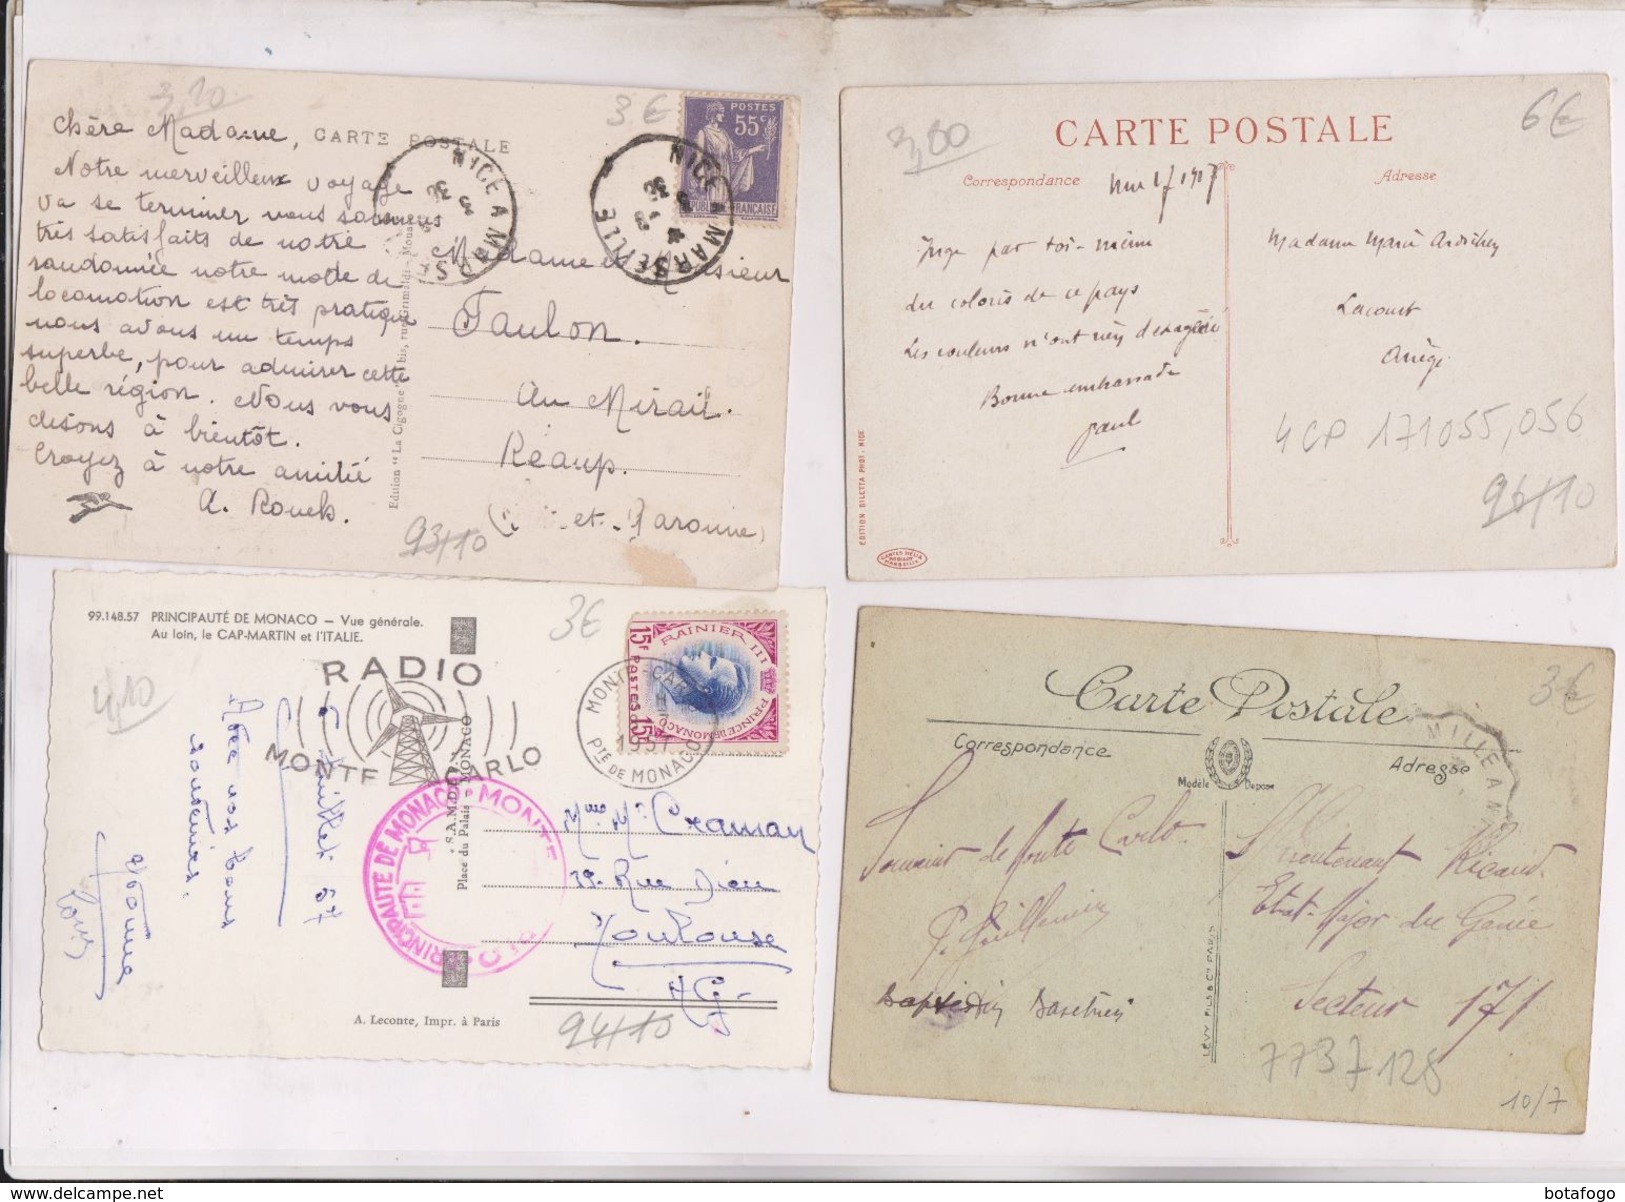 3,10
3 €
Chère Madame,
CARTE POSTALE
Notre merveilleux voyage
va se terminer nous sommes
très satisfaits de notre
randonnée notre mode de
locomotion est très pratique
nous avons un temps
superbe, pour admirer cette
belle région. Nous vous
disons à bientôt.
Croyez à notre amitié
A. Roueb.
POSTES
55c
RÉPUBLIQUE FRANÇAISE
NICE A MARSEILLE
NICE A
Madame et Monsieur
Faulon.
Au Mirail.
Réaup.
et-Garonne)
Edition "La Cigogne" bis, rue Grimaldi - Monaco
93/10
3,80
6€
CARTE POSTALE
Correspondance
Adresse
Juge par toi-même
du coloris de ce pays
Les couleurs n'ont rien d'exagéré
Bonne embrassade
Paul
Madame Marie
Lacourt
Ariège
4CP 171055,056
96/10
EDITION GILETTA PHOT. NICE
99.148.57 PRINCIPAUTÉ DE MONACO – Vue générale.
Au loin, le CAP-MARTIN et l'ITALIE.
3€
4,10
RADIO
MONTE CARLO
RAINIER III
15F POSTES 15F
PRINCIPAUTÉ DE MONACO
MONTE-CARLO
1957
PTE DE MONACO
PRINCIPAUTÉ DE MONACO - MONTE
S.A.M.D.E.P.
Place du Palais - MONACO
Juillet 57
Avec nos bons
souvenirs.
Yvonne
Louis
Mme Mr Craman
39 Rue Dieu
Toulouse
HG-
A. Leconte, Impr. à Paris
94/10
3€
Carte Postale
Correspondance
Adresse
Modèle Déposé
MILLE A NICE
Souvenir de Monte Carlo
P. Guillemin
S/Lieutenant Ricard
Etat-Major du Génie
Secteur 171
LÉVY FILS & Cie PARIS
7737128
10/7
botafogo